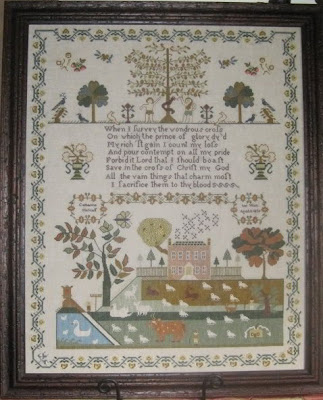 When I survey the wondrous cross
On which the prince of glory dy'd
My rich st gain I count my loss
And pour contempt on all my pride
Forbid it Lord that I should boast
Save in the cross of Christ my God
All the vain things that charm most
I sacrifice them to thy blood